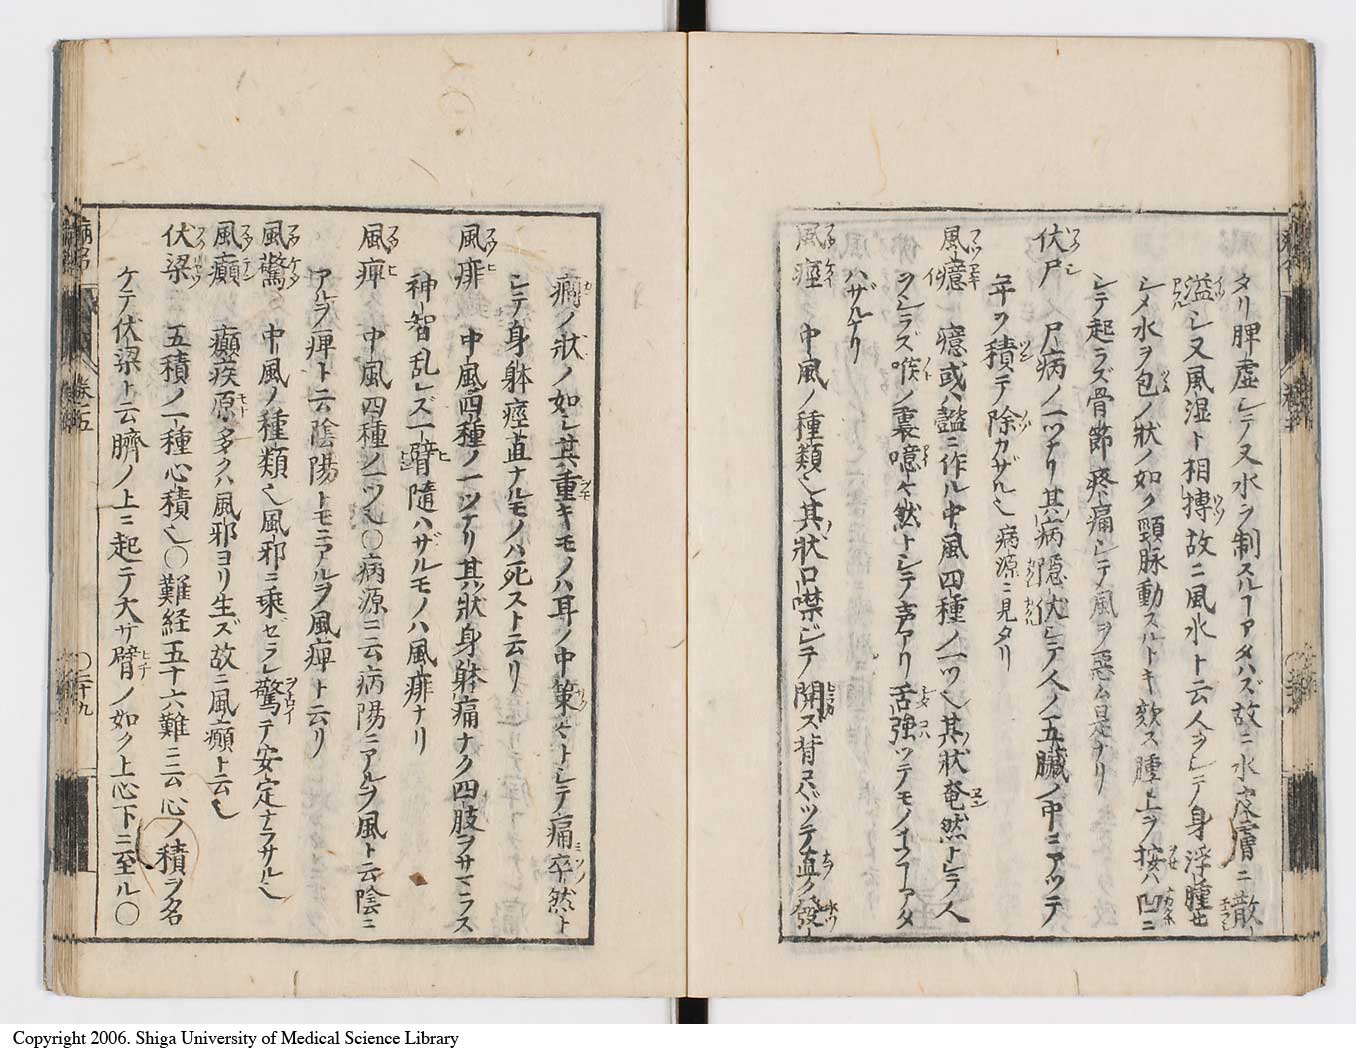 タリ脾虚シテ又水ヲ制スルヿアタハズ故ニ水皮膚ニ散
溢シ又風湿ト相搏故ニ風水ト云人ヲシテ身浮腫セ
シメ水ヲ包ノ状ノ如ク頸脉動スルトキ欬ス腫上ヲ按ハ凹ニ
シテ起ラズ骨節疼痛シテ風ヲ悪ム是ナリ
伏尸 尸病ノ一ツナリ其病隠伏シテ人ノ五臓ノ中ニアツテ
年ヲ積テ除カザル也病源ニ見タリ
風癔 癔或ハ 作ル中風四種ノ一ツ也其状奄然トシテ人
ヲシラズ喉ノ裏噫々然トシテ声アリ舌強ツテモノイフヿアタ
ハザルナリ
風痙 中風ノ種類也其状口噤シテ開ス背コハバツテ直ク發
癇ノ状ノ如シ其重キモノハ耳ノ中策々トシテ痛卒然ト
シテ身躰痙直ナルモノハ死スト云リ
風痱 中風四種ノ一ツナリ其状身躰痛ナク四肢ヲサマラス
神智乱レズ一臂隨ハザルモノハ風痱ナリ
風痺 中風四種ノ一ツ也〇病源ニ云病陽ニアルヲ風ト云陰ニ
アルヲ痺ト云陰陽トモニアルヲ風痺ト云リ
風驚 中風ノ種類也風邪ニ乘ゼラレ驚テ安定ナラサル也
風癲 癲疾原多クハ風邪ヨリ生ズ故ニ風癲ト云也
伏梁 五積ノ一種心積也〇難経五十六難ニ云心ノ積ヲ名
ケテ伏梁ト云臍ノ上ニ起テ大サ臂ノ如ク上心下ニ至ル〇
病名
巻七
〇二十九
Copyright 2006. Shiga University of Medical Science Library